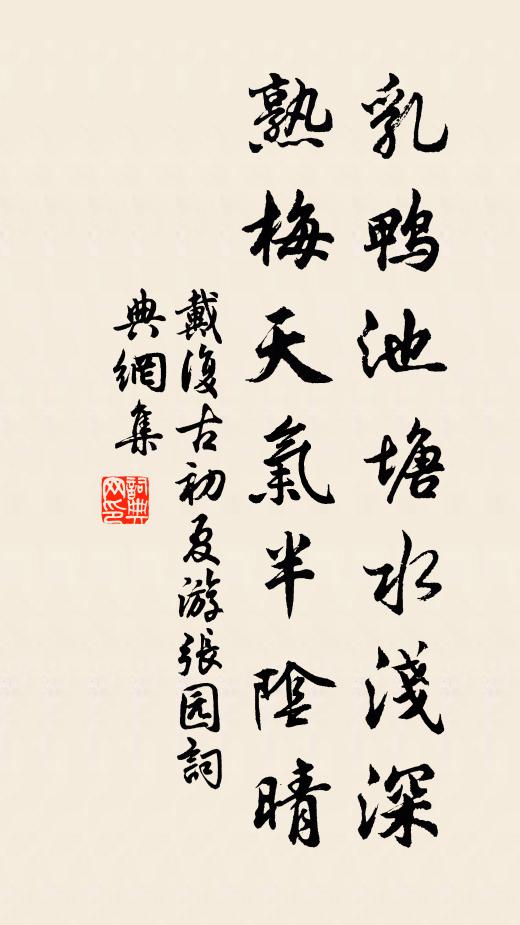 乳鴨池塘水淺深
熟梅天氣半陰晴
戴復古初夏游張园詞
典網集
詞典網印